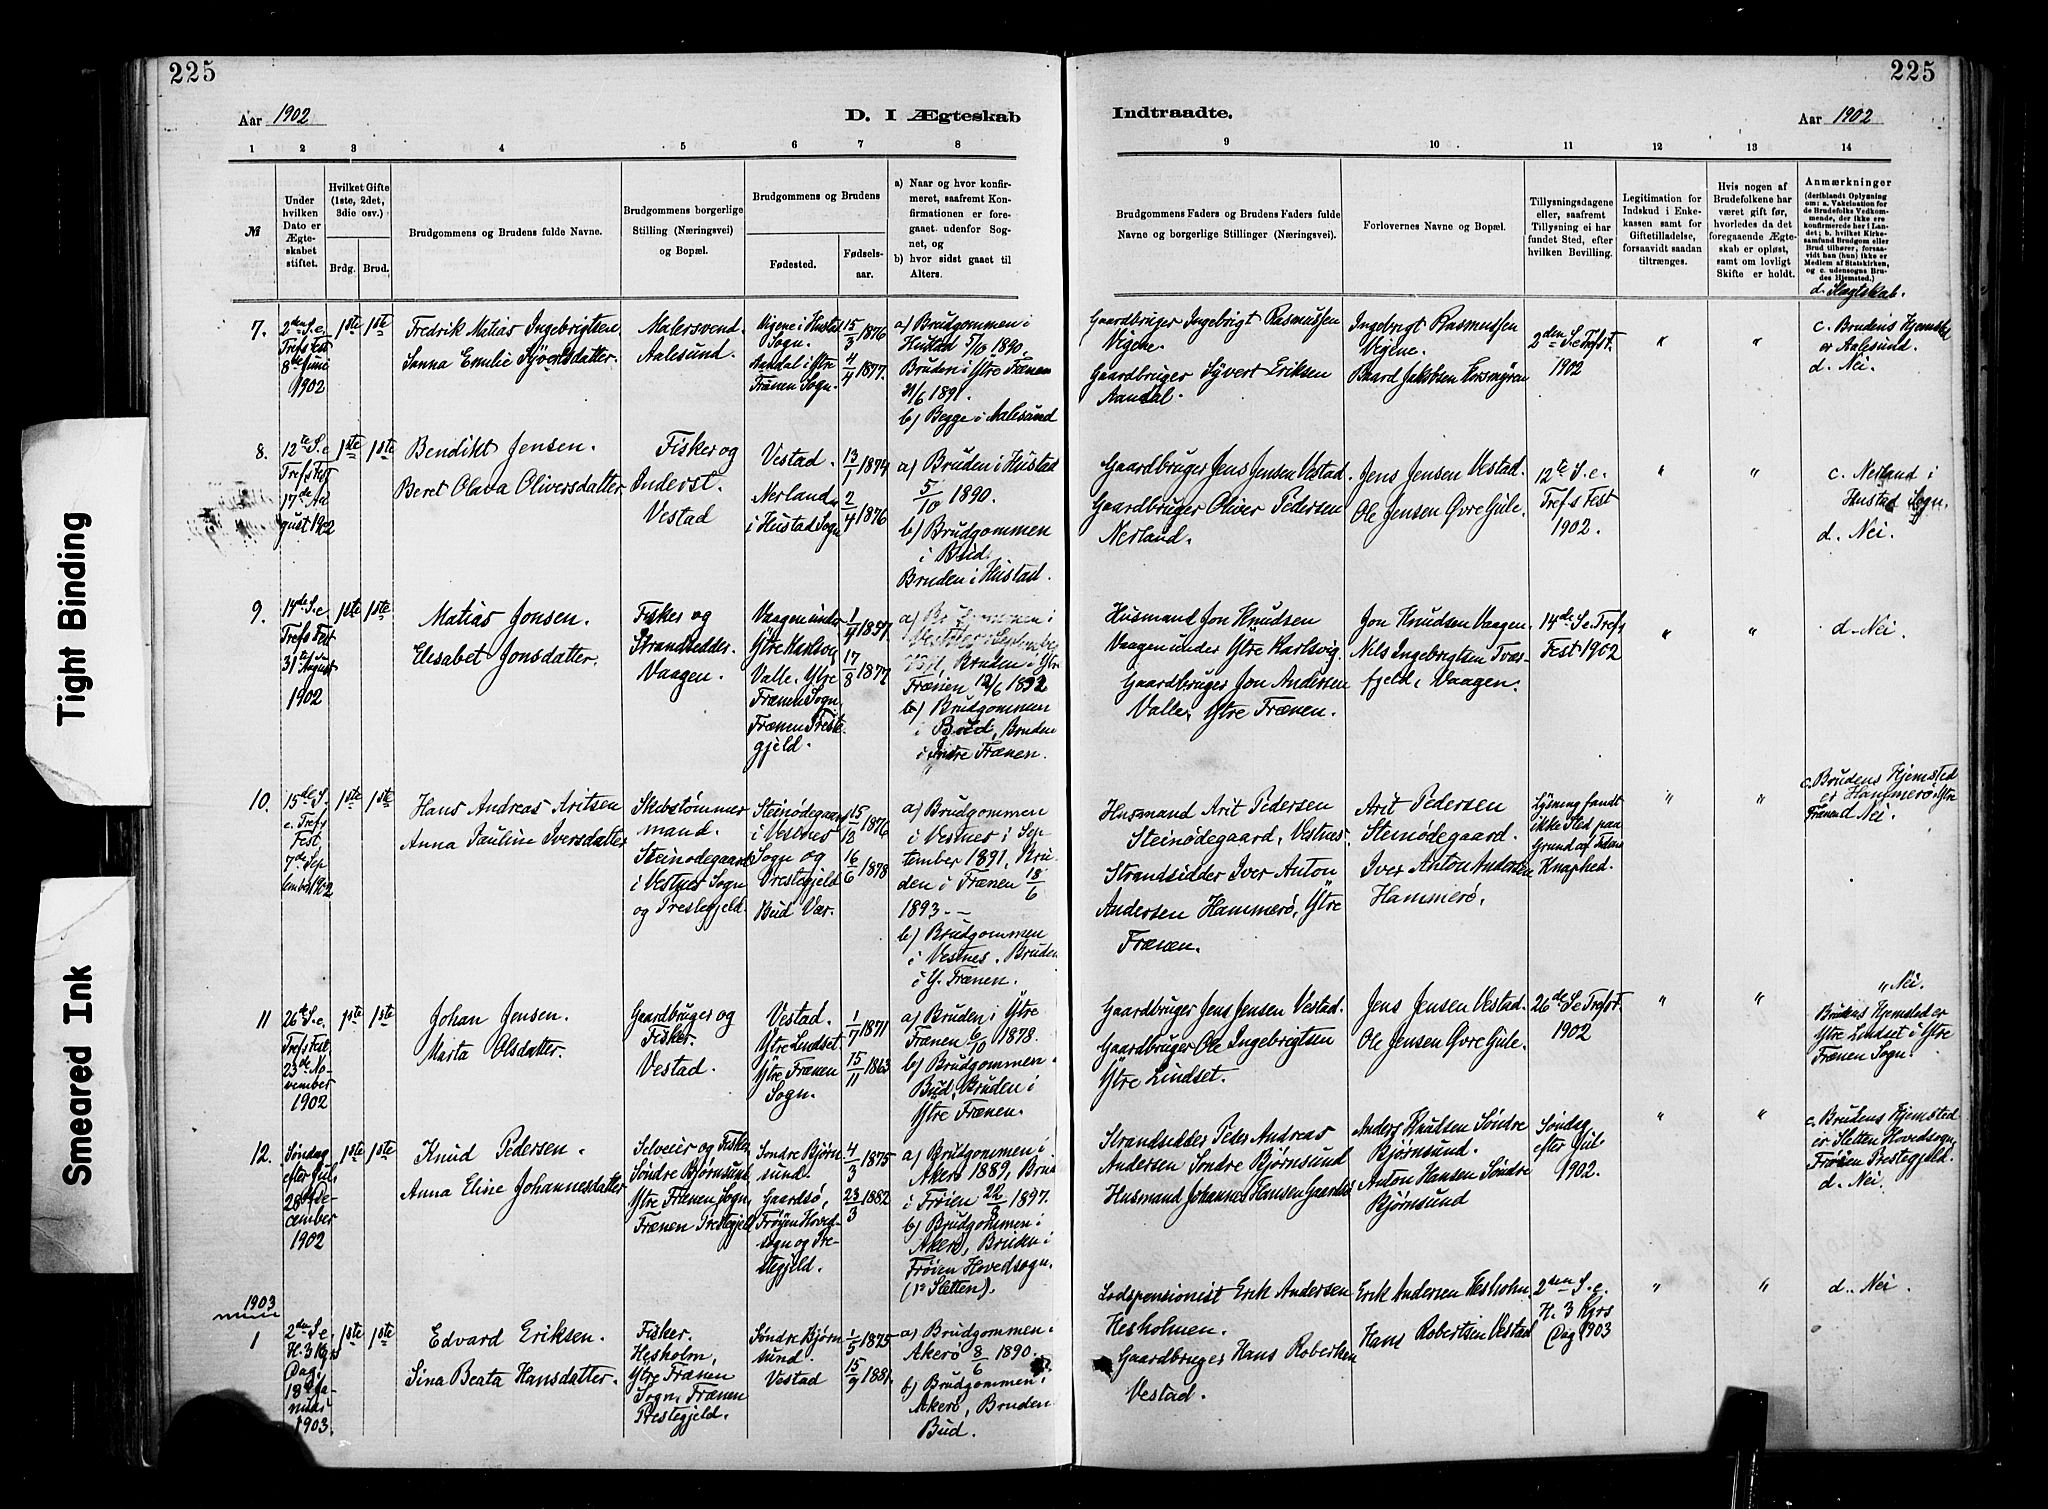 225
225
Aar 1902
D. I Ægteskab
Indtraadte.
Aar 1902
1 2 3 4 5 6 7 8
9 10 11 12 13 14
№
Under hvilken Dato er Ægteskabet stiftet.
Hvilket Gifte (1ste, 2det, 3die osv.)
Brdg. Brud.
Brudgommens og Brudens fulde Navne.
Brudgommens borgerlige Stilling (Næringsvei) og Bopæl.
Brudgommens og Brudens
Fødested.
Fødselsaar.
a) Naar og hvor konfirmeret, saafremt Konfirmationen er foregaaet udenfor Sognet, og
b) hvor sidst gaaet til Alters.
Brudgommens Faders og Brudens Faders fulde Navne og borgerlige Stillinger (Næringsvei).
Forlovernes Navne og Bopæl.
Tillysningsdagene eller, saafremt Tillysning ei har fundet Sted, efter hvilken Bevilling.
Legitimation for Indskud i Enkekassen samt for Giftetilladelse, forsaavidt saadan tiltrænges.
Hvis nogen af Brudefolkene har været gift før, hvorledes da det foregaaende Ægteskab er opløst, samt om lovligt Skifte er holdt.
Anmærkninger
(deriblandt Oplysning om: a. Vakcination for de Brudefolks Vedkommende, der ikke ere konfirmerede her i Landet; b. hvilket Kirkesamfund Brudgom eller Brud tilhører, forsaavidt han (hun) ikke er Medlem af Statskirken, og c. udensogns Brudes Hjemsted.)
d. Slægtskab.
7.
2den S. e. Trefs Fest 8de Juni 1902
1ste 1ste
Fredrik Matias Ingebrigtsen.
Sanna Emilie Syvertsdatter.
Malersvend. Aalesund.
Vigene i Hustad Sogn.
Aandal i Ytre Frænen Sogn.
15/3 1876
4/4 1877.
a) Brudgommen i Hustad 5/10 1890.
Bruden i Ytre Frænen 21/6 1891.
b) Begge i Aalesund
Gaardbruger Ingebrigt Rasmussen Vigene.
Gaardbruger Syvert Eriksen Aandal.
Ingebrigt Rasmussen Vigene.
Baard Jakobsen
2den S. e. Trefst. 1902
" "
c. Brudens Hjemsted er Aalesund.
d. Nei.
8.
12te S. e. Trefs Fest 17de August 1902
1ste 1ste
Bendikt Jensen.
Beret Olava Oliversdatter.
Fisker og Inderst. Vestad
Vestad.
Nerland i Hustad Sogn
13/1 1874
2/4 1876
a) Bruden i Hustad 5/10 1890.
b) Brudgommen i Bud.
Bruden i Hustad.
Gaardbruger Jens Jensen Vestad.
Gaardbruger Oliver Pedersen Nerland.
Jens Jensen Vestad.
Ole Jensen Øvre Gule.
12te S. e. Trefs Fest 1902.
" "
c. Nerland i Hustad Sogn.
d. Nei.
9.
14de S. e. Trefs Fest 31te August 1902
1ste 1ste
Matias Jonsen.
Elesabet Jonsdatter.
Fisker og Strandsidder Vaagen.
Vaagen under Ytre Karlsvig
Valle, Ytre Frænen Sogn, Frænen Prestegjeld.
17/8 1877
a) Brudgommen i
Bruden i Ytre Frænen 12/6 1892
b) Brudgommen i Bud, Bruden i Indre Frænen.
Husmand Jon Knudsen Vaagen under Ytre Karlsvig.
Gaardbruger Jon Andersen Valle, Ytre Frænen.
Jon Knudsen Vaagen.
Nels Ingebrigtsen Tværfjeld, Vaagen.
14de S. e. Trefs Fest 1902
" "
d. Nei.
10.
15de S. e. Trefs Fest, 7de September 1902
1ste 1ste
Hans Andreas Aritsen
Anna Pauline Iversdatter
Skibstømmermand. Steinødegaard i Vestnes Sogn og Prestegjeld.
Steinødegaard i Vestnes Sogn og Prestegjeld
Bud Vær.
15/12 1876
16/6 1878
a) Brudgommen i Vestnes i September 1891, Bruden i Frænen 18/6 1893.
b) Brudgommen i Vestnes. Bruden i Y. Frænen.
Husmand Arit Pedersen Steinødegaard, Vestnes.
Strandsidder Iver Anton Andersen Hammerø, Ytre Frænen.
Arit Pedersen Steinødegaard.
Iver Anton Andersen Hammerø.
Lysning fandt ikke Sted paa Grund af Tidens Knaphed.
" "
c. Brudens Hjemsted er Hammerø, Ytre Frænen
d Nei.
11
26de S. e. Trefs Fest. 23de November 1902
1ste 1ste
Johan Jensen.
Marta Olsdatter.
Gaardbruger og Fisker. Vestad.
Vestad.
Ytre Lindset Ytre Frænen Sogn.
1/7 1871
15/11 1863
a) Bruden i Ytre Frænen 6/10 1878.
b) Brudgommen i Bud, Bruden i Ytre Frænen.
Gaardbruger Jens Jensen Vestad.
Gaardbruger Ole Ingebrigtsen Ytre Lindset.
Jens Jensen Vestad.
Ole Jensen Øvre Gule.
26de S. e. Trefst. 1902
" "
" Nei.
Brudens Hjemsted er Ytre Lindset i Ytre Frænen Sogn.
12.
Søndag efter Jul, 28de December 1902
1ste 1ste
Knud Pedersen.
Anna Eline Johannesdatter
Selveier og Fisker Søndre Bjørnsund, Ytre Frænen Sogn, Frænen Prestegjeld
Søndre Bjørnsund.
Gaardsø, Frøien Hovedsogn og Prestegjeld.
4/3 1875
23/3 1882
a) Brudgommen i Akerø 1889, Brud. i Frøien 22/8 1897.
b) Brudgommen i Akerø, Bruden i Frøien Hovedsogn. (Sletten).
Strandsidder Peder Andreas Andersen Søndre Bjørnsund
Husmand Johannes Hansen Gaardsø
Anders Knudsen Søndre Bjørnsund.
Anton Hansen Søndre Bjørnsund
Søndag efter Jul 1902.
" "
c. Brudens Hjemsted er Sletten Hovedsogn, Frøien Prestegjeld.
d. Nei.
1903
1
2den S. e. H. 3 Kgrs Dag, 18de Januar 1903.
1ste 1ste
Edvard Eriksen.
Sina Beata Hansdatter.
Fisker. Hesholm, Ytre Frænen Sogn, Frænen Prestegjeld.
Søndre Bjørnsund.
Vestad
1/5 1875
15/9 1881.
a) Brudgommen i Akerø 8/6 1890.
b) Brudgommen i Akerø, Bruden Bud.
Lodspensionist Erik Andersen Hesholmen.
Gaardbruger Hans Robertsen Vestad.
Erik Andersen Hesholm.
Hans Robertsen Vestad
2den S. e. H. 3 Kgrs Dag 1903
" "
d. Nei
Tight Binding
Smeared Ink